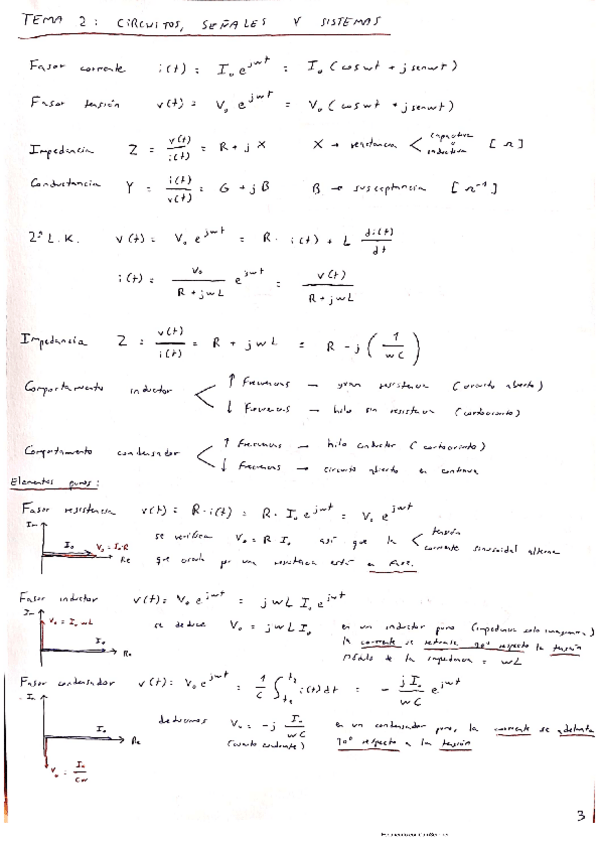 TEMA 2: CIRCUITOS, SEÑALES Y SISTEMAS
Fasor corriente i(t) = I₀ e^{jωt} = I₀ (cosωt + j senωt)
Fasor tensión v(t) = V₀ e^{jωt} = V₀ (cosωt + j senωt)
Impedancia Z = v(t)/i(t) = R + j X X → reactancia < capacitiva o inductiva [Ω]
Conductancia Y = i(t)/v(t) = G + j B B → susceptancia [Ω⁻¹]
2ª L.K. v(t) = V₀ e^{jωt} = R · i(t) + L di(t)/dt
i(t) = V₀/(R + jωL) e^{jωt} = v(t)/(R + jωL)
Impedancia Z = v(t)/i(t) = R + jωL = R - j (1/ωC)
Comportamiento inductor < ↑ Frecuencias → gran resistencia (circuito abierto)
↓ Frecuencias → hilo sin resistencia (cortocircuito)
Comportamiento condensador < ↑ Frecuencias → hilo conductor (cortocircuito)
↓ Frecuencias → circuito abierto en continua
Elementos puros:
Fasor resistencia v(t) = R · i(t) = R · I₀ e^{jωt} = V₀ e^{jωt}
Im I₀ V₀ = I₀·R Re
se verifica V₀ = R I₀ así que la < tensión
corriente sinusoidal alterna
que circula por una resistencia está en fase.
Fasor inductor v(t) = V₀ e^{jωt} = jωL I₀ e^{jωt}
Im V₀ = I₀ ωL I₀ Re
se deduce V₀ = jωL I₀ en un inductor puro (impedancia solo imaginaria)
la corriente se retrasa 90° respecto la tensión
módulo de la impedancia = ωL
Fasor condensador v(t) = V₀ e^{jωt} = 1/C ∫_{t₁}^{t₂} i(t) dt = - jI₀/ωC e^{jωt}
Im I₀ Re V₀ = I₀/Cω
deducimos V₀ = -j I₀/ωC en un condensador puro, la corriente se adelanta
(cuarto cuadrante) 90° respecto a la tensión
3